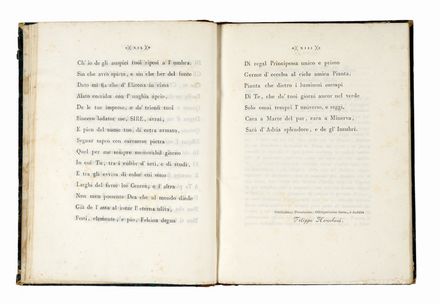 VII
Ch' io de gli auspici tuoi riposi a l' ombra.
Sin che avrò spirto, e sin che ber del fonte
Dato mi fia che d' Elicona in vista
Alato corridor con l' unghia aprìo,
De le tue imprese, e de' trionfi tuoi
Sincero lodator me, SIRE, avrai,
E pien del nume tuo, di cetra armato,
Segnar saprò con curzante pietra
Quel per me sempre memorabil giorno
In cui Tu, tra i voltò d' arti, e di studi,
E tra gli evviva di color cui sono
Larghi del favor lor Genti, e d' altra
Non men possente Dea che al mondo diede
Già de l' asta al suon l' eterna uliva,
Forti, clemente, e pio, Felsina degni
VIII
Di regal Principessa unico e primo
Germe d' eccelsa al cielo amica Pianta,
Pianta che dietro i luminosi esempi
Di Te, che de' tuoi giorni ancor nel verde
Solo omai tempri l' universo, e reggi,
Cara a Marte del par, cara a Minerva,
Sarà d' Adria splendore, e de gl' Insubri.
Filippo